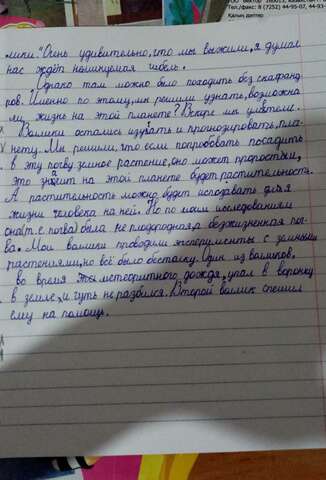 Тел./факс: 8 (7252) 44-95-07, 44-93-
Қалың дәптер
лики." Очень удивительно, что мы выжили, я думал
нас ждёт неминуемая гибель.
Однако там можно было походить без скафанд
ров. Именно по этому, мы решили узнать, возможна
ли жизнь на этой планете? Вскоре мы улетели.
Валики остались изучать и прогнозировать, пла-
нету. Мы решили, что если попробовать посадить
в эту почву земное растение, оно может прорости и,
это значит на этой планете будет растительность.
А растительность можно будет использовать для
жизни человека на ней. Но по моим исследованиям
она(т.е почва) была не плодородная, а безжизненная поч-
ва. Мои валики проводили эксперименты с земными
растениями, но всё было бестолку. Один из валиков,
во время метеоритного дождя, упал в воронку
в земле, и чуть не разбился. Второй валик спешил
ему на помощь.